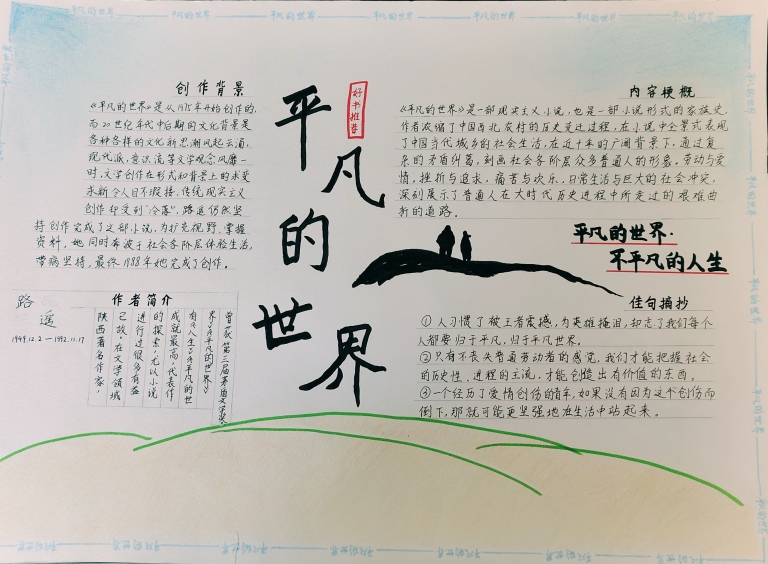 平凡的世界
好书推荐
创作背景
《平凡的世界》是从1975年开始创作的,
而20世纪年代中后期的文化背景是
各种各样的文化新思潮风起云涌,
现代派、意识流等文学观念风靡一
时,文学创作在形式和背景上的求变
求新令人目不暇接,传统现实主义
创作却受到“冷落”,路遥仍然坚
持创作完成了这部小说,为扩充视野、掌握
资料,她同时奔波于社会各阶层体验生活,
带病坚持,最终1988年她完成了创作。
作者简介
路遥
1949.12.2—1992.11.17
陕西著名作家,
已故,在文学领域
进行过很多有益
的探索,尤以小说
成就最高。代表作
有《人生》《平凡的世
界》,《平凡的世界》
曾获第三届茅盾文学奖。
内容梗概
《平凡的世界》是一部现实主义小说,也是一部小说形式的家族史,
作者浓缩了中国西北农村的历史变迁过程,在小说中全景式表现
了中国当代城乡的社会生活,在近十年的广阔背景下,通过复
杂的矛盾纠葛,刻画社会各阶层众多普通人的形象,劳动与爱
情,挫折与追求,痛苦与欢乐,日常生活与巨大的社会冲突,
深刻展示了普通人在大时代历史进程中所走过的艰难曲
折的道路。
平凡的世界·
不平凡的人生
佳句摘抄
①人习惯了被王者震撼,为英雄掩泪,却忘了我们每个
人都要归于平凡,归于平凡世界。
②只有不丧失普通劳动者的感觉,我们才能把握社会
的历史性、进程的主流,才能创造出有价值的东西。
③一个经历了爱情创伤的青年,如果没有因为这个创伤而
倒下,那就可能更坚强地在生活中站起来。